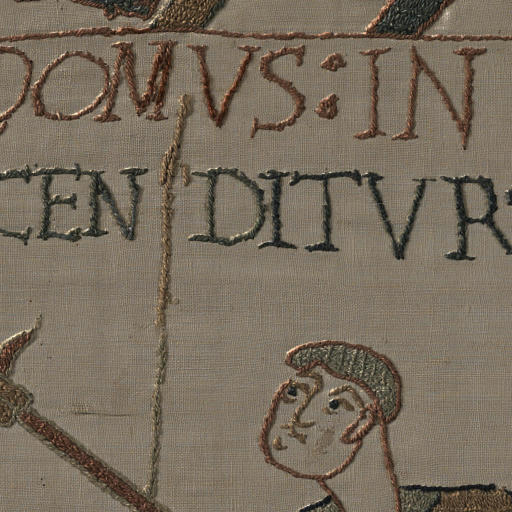 DOMVS: IN
CENDITVR